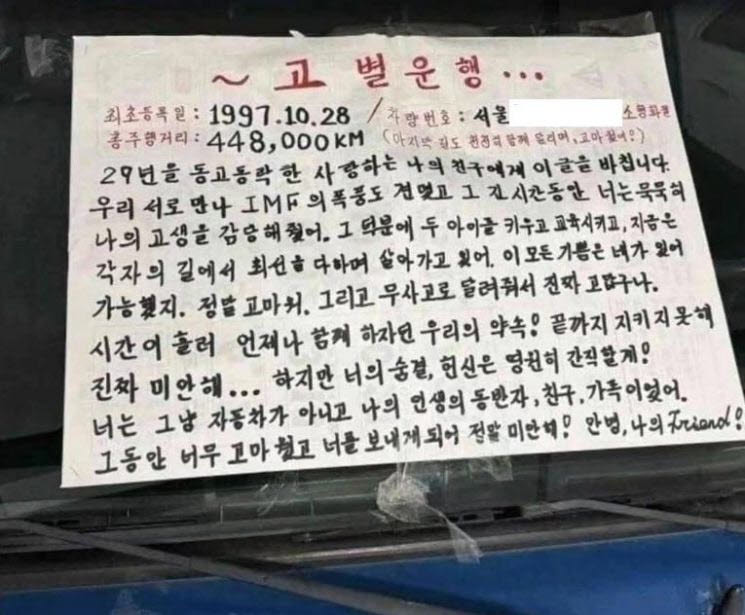 ~ 고별운행...
최초등록일: 1997.10.28 / 차량번호: 서울 소형화물
총주행거리: 448,000KM (마지막 길도 천천히 함께 달리며, 고마웠어?)
29년을 동고동락 한 사랑하는 나의 친구에게 이 글을 바칩니다.
우리 서로 만나 IMF의 폭풍도 견뎠고 그 긴 시간동안 너는 묵묵히
나의 고생을 감당해줬어. 그 덕분에 두 아이를 키우고 교육시키고, 지금은
각자의 길에서 최선을 다하며 살아가고 있어. 이 모든 기쁨은 네가 있어
가능했지. 정말 고마워. 그리고 무사고로 달려줘서 진짜 고맙구나.
시간이 흘러 언제나 함께 하자던 우리의 약속! 끝까지 지키지 못해
진짜 미안해... 하지만 너의 숨결, 헌신은 영원히 간직할게!
너는 그냥 자동차가 아니고 나의 인생의 동반자, 친구, 가족이었어.
그동안 너무 고마웠고 너를 보내게 되어 정말 미안해! 안녕, 나의 Friend!